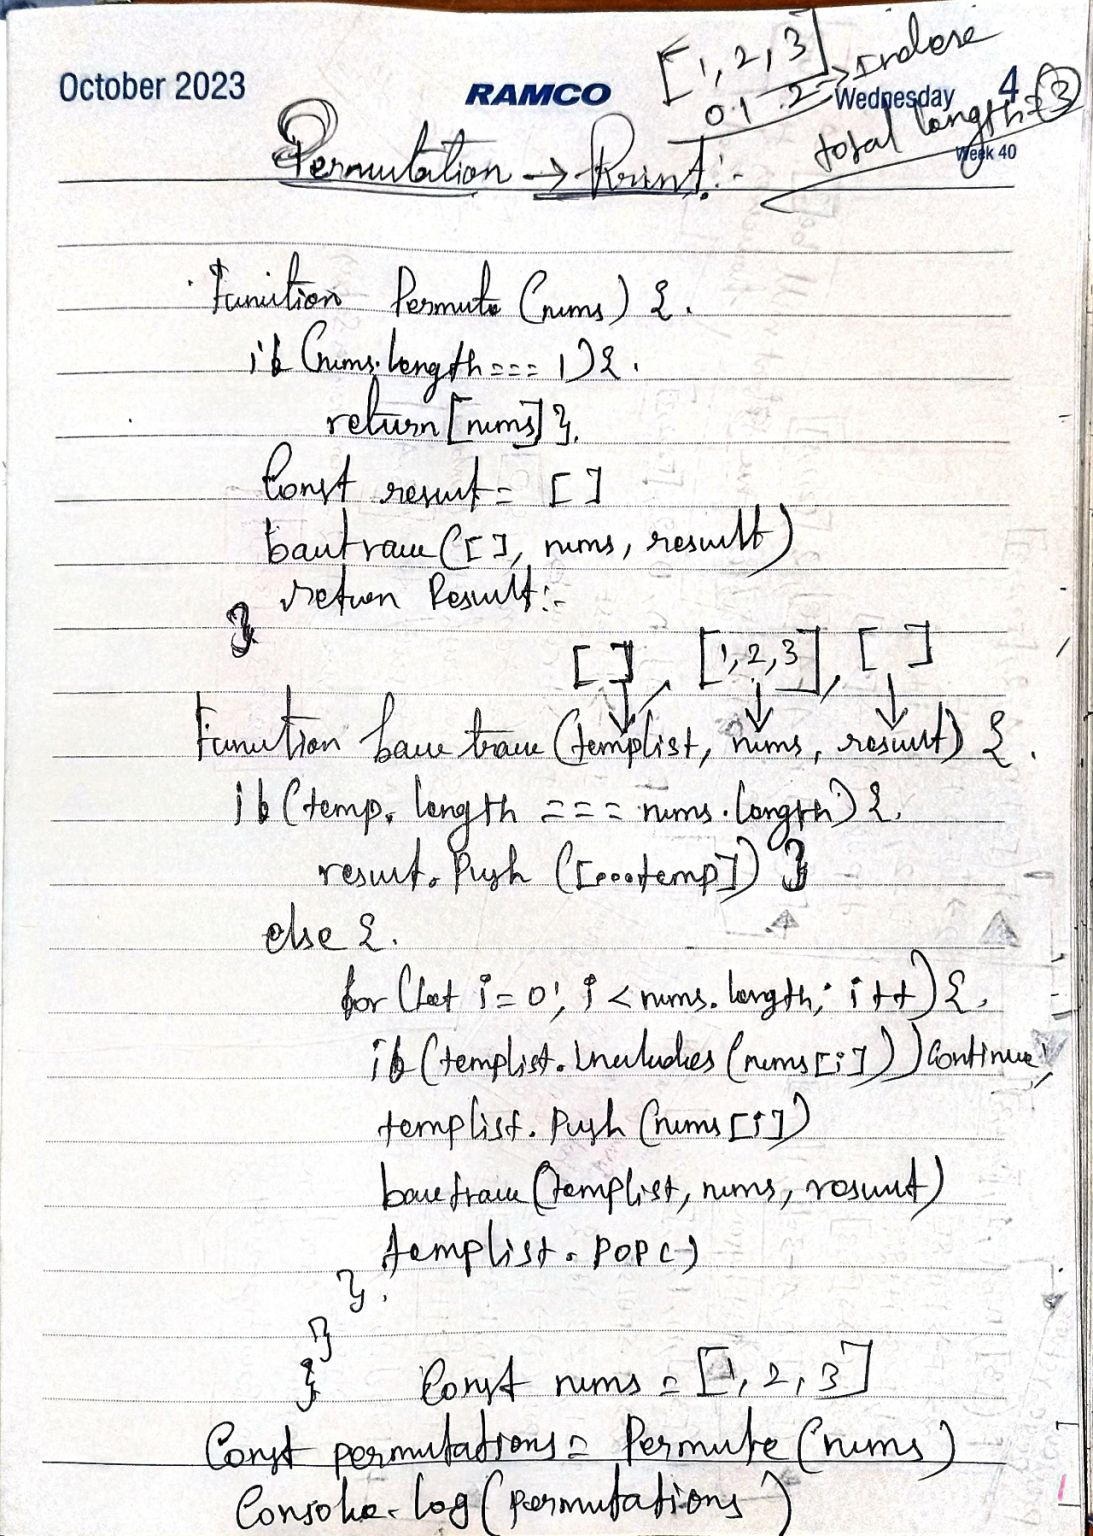 [1, 2, 3]
0 1 2 → Indexe
October 2023 RAMCO Wednesday 4
total length = 3
Week 40
Permutation → Print:-
Function Permute (nums) {
if (nums.length === 1) {
return [nums] }
Const result = [ ]
backtrack ([ ], nums, result)
return Result:-
}
[ ] , [1, 2, 3] , [ ]
Function backtrack (templist, nums, result) {
if (temp.length === nums.length) {
result.Push ([...temp]) }
else {
for (let i = 0; i < nums.length; i++) {
if (templist.includes (nums[i])) Continue;
templist.Push (nums[i])
backtrack (templist, nums, result)
templist.POP()
}
}
} Const nums = [1, 2, 3]
Const permutations = Permute (nums)
Console.log (permutations)